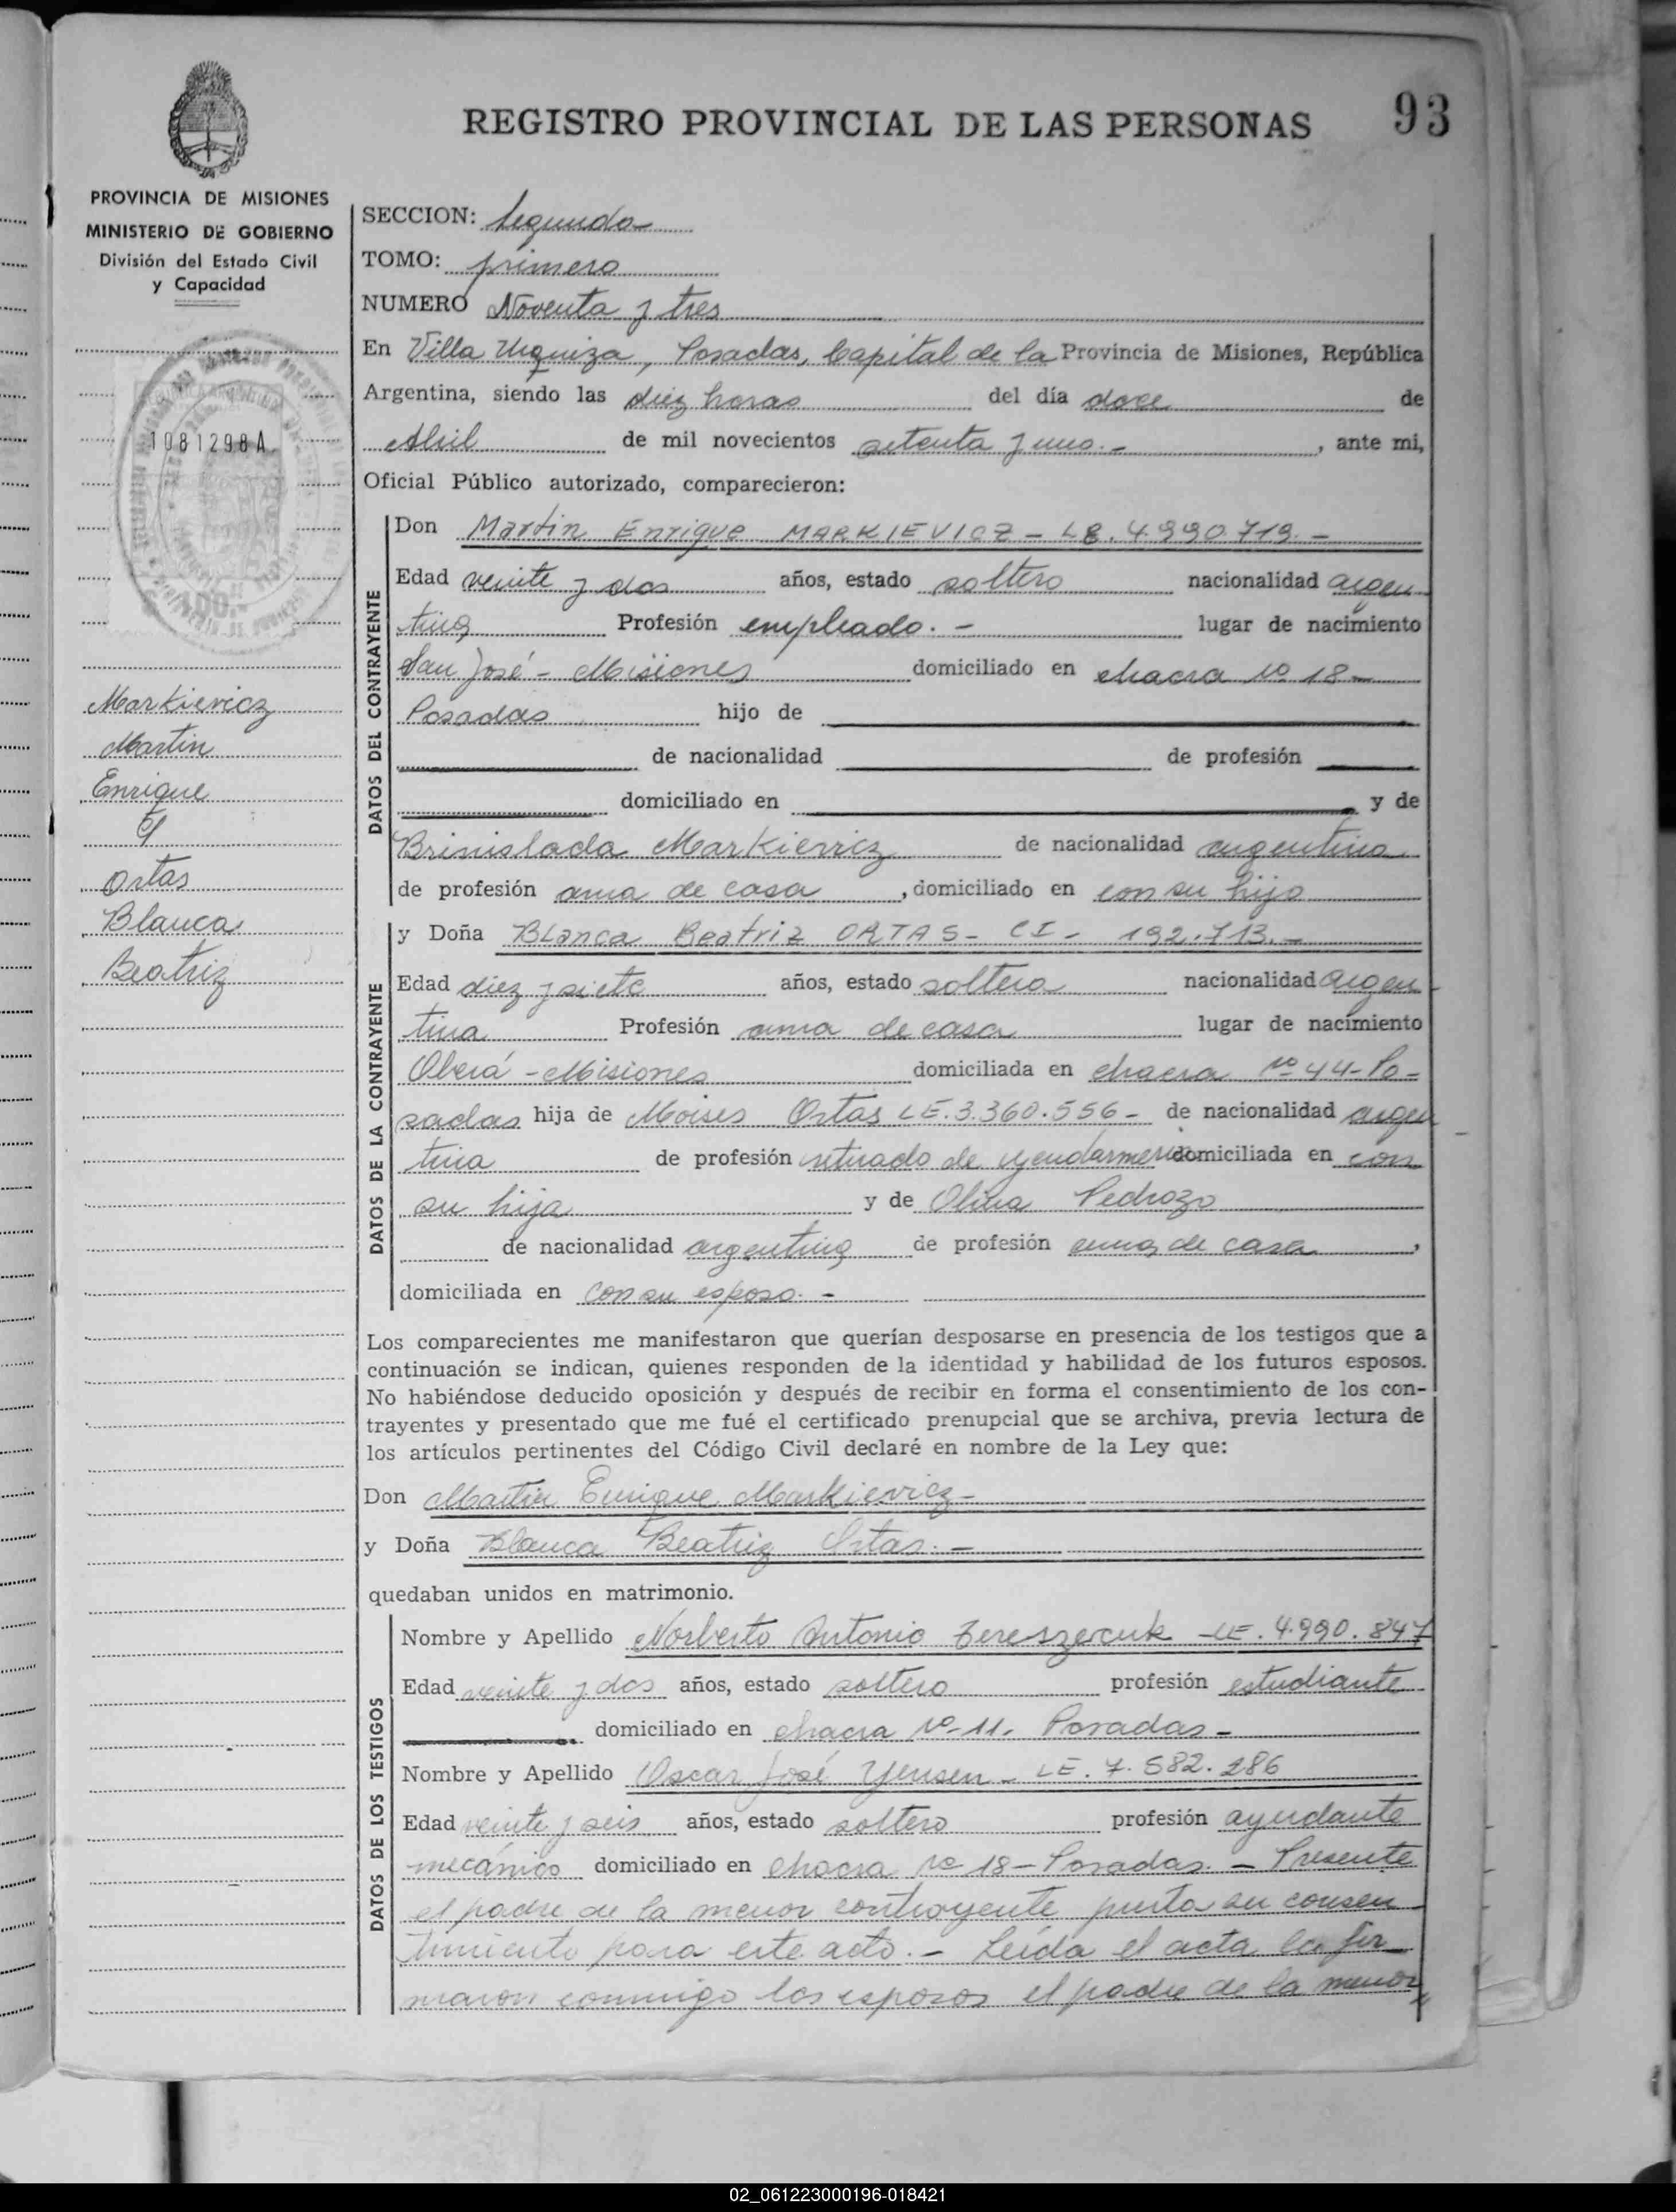 REGISTRO PROVINCIAL DE LAS PERSONAS 93
PROVINCIA DE MISIONES
MINISTERIO DE GOBIERNO
División del Estado Civil
y Capacidad
1081298A
Markievicz
Martin
Enrique
y
Ortas
Blanca
Beatriz
SECCION: Segunda
TOMO: primero
NUMERO Noventa y tres
En Villa Urquiza, Posadas, Capital de la Provincia de Misiones, República
Argentina, siendo las diez horas del día doce de
Abril de mil novecientos setenta y uno.-, ante mi,
Oficial Público autorizado, comparecieron:
DATOS DEL CONTRAYENTE
Don Martin Enrique MARKIEVICZ - LE. 4.990.719.-
Edad veinte y dos años, estado soltero nacionalidad argen
tina Profesión empleado.- lugar de nacimiento
San José - Misiones domiciliado en chacra Nº 18-
Posadas hijo de
de nacionalidad de profesión
domiciliado en y de
Brinislada Markievicz de nacionalidad argentina
de profesión ama de casa, domiciliado en con su hijo
DATOS DE LA CONTRAYENTE
y Doña Blanca Beatriz ORTAS- CI- 192.713.-
Edad diez y siete años, estado soltera nacionalidad argen
tina Profesión ama de casa lugar de nacimiento
Oberá - Misiones domiciliada en chacra Nº 44- Po-
sadas hija de Moises Ortas LE. 3.360.556- de nacionalidad argen
tina de profesión retirado de gendarmeria domiciliada en con
su hija y de Olina Pedrozo
de nacionalidad argentina de profesión ama de casa,
domiciliada en con su esposo.-
Los comparecientes me manifestaron que querían desposarse en presencia de los testigos que a
continuación se indican, quienes responden de la identidad y habilidad de los futuros esposos.
No habiéndose deducido oposición y después de recibir en forma el consentimiento de los con-
trayentes y presentado que me fué el certificado prenupcial que se archiva, previa lectura de
los artículos pertinentes del Código Civil declaré en nombre de la Ley que:
Don Martin Enrique Markievicz-
y Doña Blanca Beatriz Ortas.-
quedaban unidos en matrimonio.
DATOS DE LOS TESTIGOS
Nombre y Apellido Norberto Antonio Zereszercuk - LE. 4.990.847
Edad veinte y dos años, estado soltero profesión estudiante
domiciliado en chacra Nº-11. Posadas-
Nombre y Apellido Oscar José Yensen - LE. 7.582.286
Edad veinte y seis años, estado soltero profesión ayudante
mecánico domiciliado en chacra Nº 18 - Posadas.- Presente
el padre de la menor contrayente presta su consen
timiento para este acto.- Leída el acta la fir
maron conmigo los esposos el padre de la menor
02_061223000196-018421